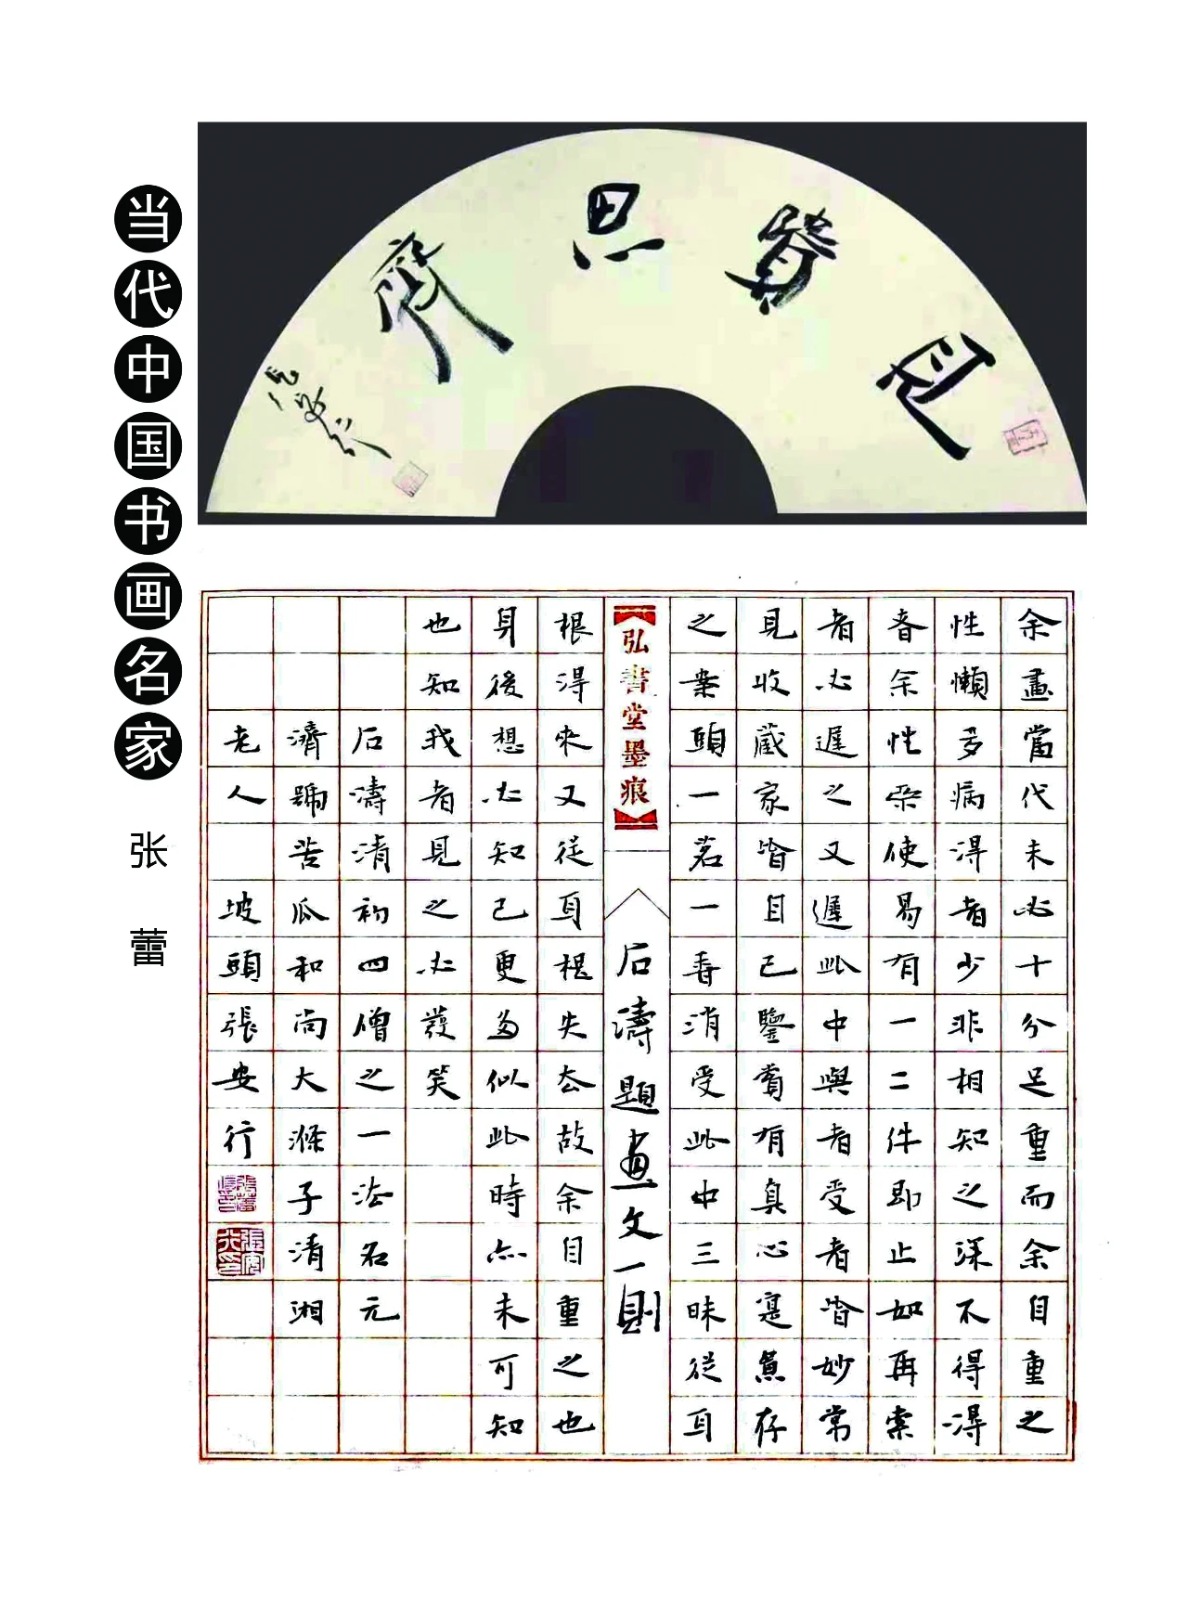 当代中国书画名家
张蕾
見賢思齊
余畫當代未必十分足重而余自重之
性懶多病得者少非相知之深不得得
眷余性柔使易有一二件即止如再索
者必遲之又遲此中與者受者皆妙常
見收藏家皆自己鑒賞有真心寔意存
之案頭一茗一香消受此中三昧從耳
弘書堂墨痕
石濤題畫文一則
根得來又從耳根失去故余自重之也
身後想必知己更多似此時亦未可知
也知我者見之必發笑
石濤清初四僧之一法名元
濟號苦瓜和尚大滌子清湘
老人 坡頭張安行